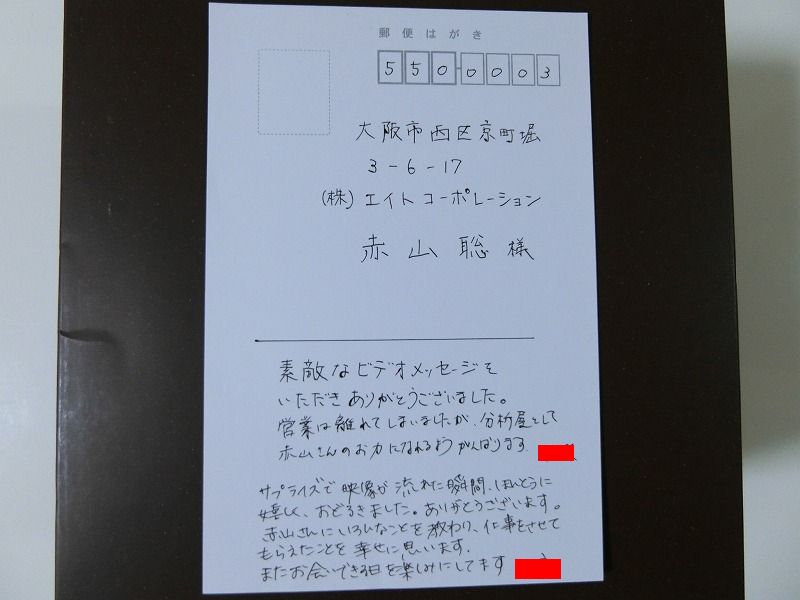 郵便はがき
550-0003
大阪市西区京町堀
3-6-17
(株)エイトコーポレーション
赤山聡様
素敵なビデオメッセージを
いただきありがとうございました。
営業は離れてしまいましたが、分析屋として
赤山さんのお力になれるようがんばります。
サプライズで映像が流れた瞬間、ほんとうに
嬉しく、おどろきました。ありがとうございます。
赤山さんにいろんなことを教わり、仕事をさせて
もらえたことを幸せに思います。
またお会いできる日を楽しみにしてます